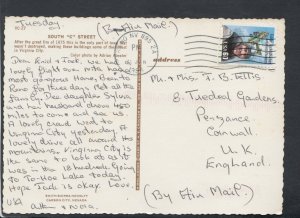 Tuesday
(By Air Mail)
SOUTH "C" STREET
After the great fire of 1875 this is the only part of town that
wasn't destroyed, making these buildings some of the oldest
in Virginia City.
Color photo by
Dear Enid & Jack, we had a
lovely flight over. Alla had
most gorgeous Home. Been to
Reno for three days. Met all the
family. Dee daughter Sylvia
and her husband drove 400
miles to come and see us.
A lovely crowd. Went to
Virginia City yesterday. A
lovely drive all around the
mountains. Virginia City is
the same to look at as it
was in the 18 hundreds. Going
to Tahoe Lake today.
Hope Jack is okay. Love
U.S.A
address
Mr. & Mrs. J. B. Ellis
8. Gardens.
Penzance
Cornwall.
U.K.
England.
(By Air Mail)
CARSON CITY, NEVADA